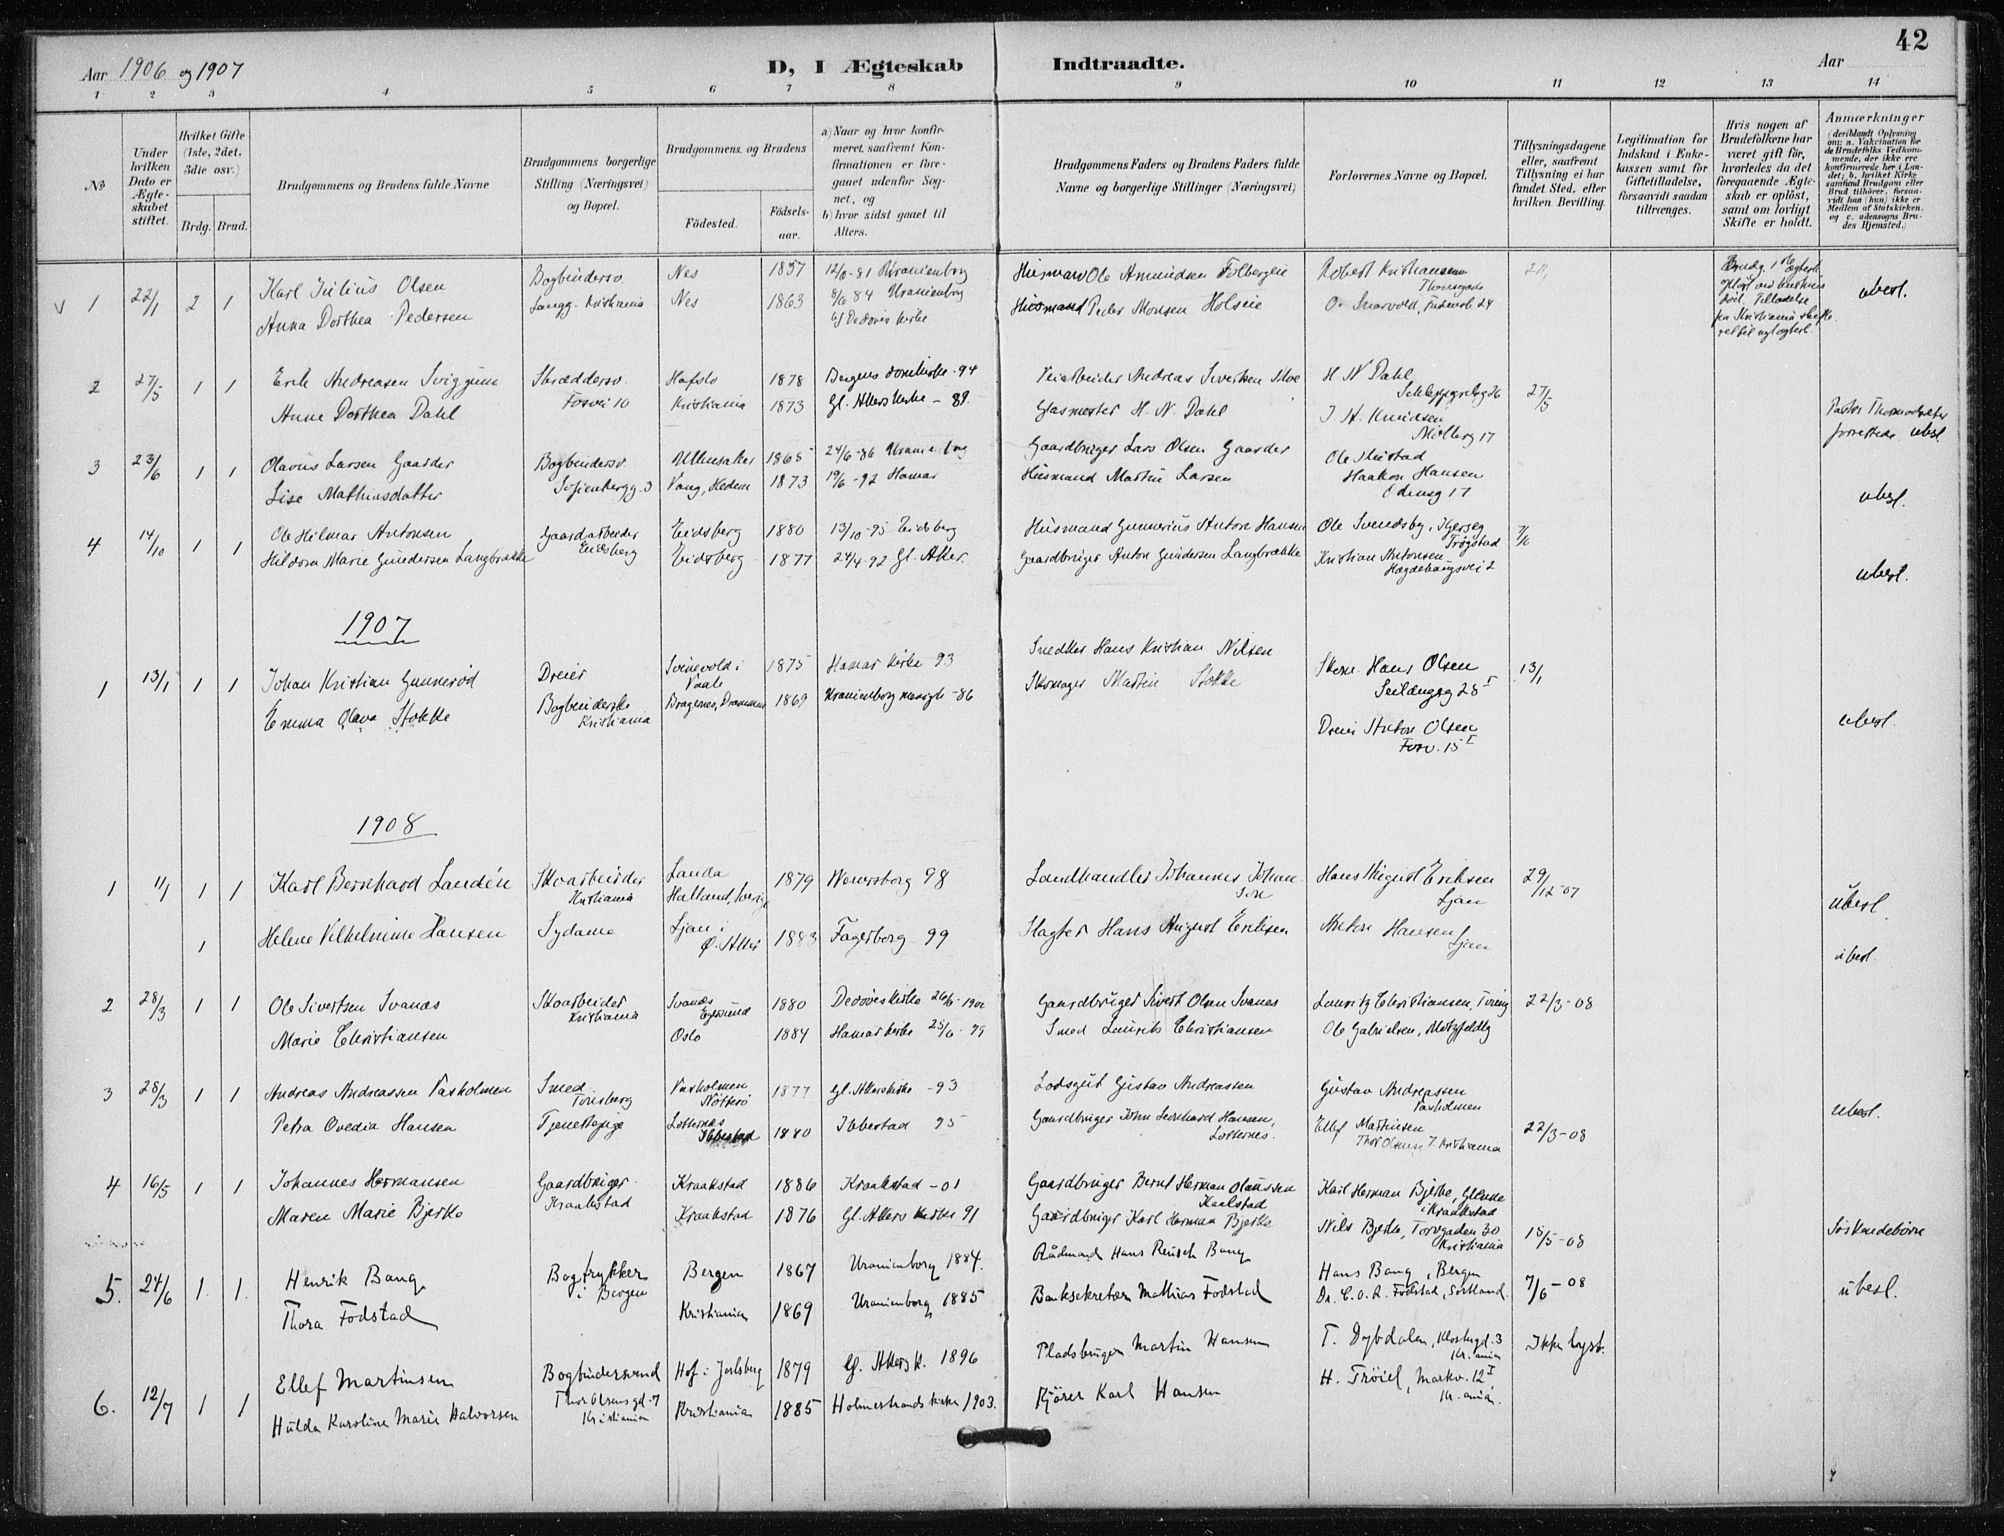 42
Aar 1906 og 1907
D, I Ægteskab Indtraadte.
Aar
1 2 3 4 5 6 7 8 9 10 11 12 13 14
№
Under hvilken Dato er Ægte-skabet stiftet.
Hvilket Gifte (1ste, 2det, 3die osv.)
Brdg. Brud.
Brudgommens og Brudens fulde Navne
Brudgommens borgerlige Stilling (Næringsvei) og Bopæl.
Brudgommens og Brudens
Födested.
Födsels-aar.
a) Naar og hvor konfir-meret, saafremt Kon-firmationen er fore-gaaet udenfor Sog-net, og
b) hvor sidst gaaet til Alters.
Brudgommens Faders og Brudens Faders fulde Navne og borgerlige Stillinger (Næringsvei)
Forlovernes Navne og Bopæl.
Tillysningsdagene eller, saafremt Tillysning ei har fundet Sted, efter hvilken Bevilling.
Legitimation for Indskud i Enke-kassen samt for Giftetilladelse, forsaavidt saadan tiltrænges.
Hvis nogen af Brudefolkene har været gift för, hvorledes da det foregaaende Ægte-skab er oplöst, samt om lovligt Skifte er holdt.
Anmærkninger (deriblandt Oplysning om: a. Vakcination for de Brudefolks Vedkom-mende, der ikke ere konfirmerede her i Lan-det; b. hvilket Kirke-samfund Brudgom eller Brud tilhörer, forsaa-vidt han (hun) ikke er Medlem af Statskirken, og c. udensogns Bru-des Hjemsted.)
V 1 22/1 2 1 Karl Julius Olsen Bogbindersv. Nes 1857 12/0-81 Uranienborg Husmand Ole Amundsen Robert Kristiansen
Anna Dorthea Pedersen Langg. Kristiania Nes 1863 84 Uranienborg Husmand Peder Monsen Holseie ubesl.
2 27/5 1 1 Erik Andreasen Sviggum Skræddersv. Hafslo 1878 Bergens domkirke -94 Veiarbeider Andreas Sivertsen H N Dahl 27/5
Anne Dorthea Dahl Fosvei 10 Kristiania 1873 Gl. Akers kirke - 89. Glasmester H. N. Dahl J. A. Knudsen
Møllerg 17 ubesl
3 23/6 1 1 Olavus Larsen Gaarder Bogbindersv. Ullensaker 1865 24/6-86 Uranienborg Gaardbruger Lars Olsen Gaarder
Lise Mathiasdatter Sofienbergg. 3 Vang, Hedem 1873 19/6-92 Hamar Husmand Martin Larsen Haakon Hansen
Edensg 17 ubesl.
4 14/10 1 1 Ole Hilmar Antonsen Gaardarbeider Eidsberg 1880 13/10-95 Eidsberg Husmand Gunnerius Anton Hansen Ole Svendsby,
Trøgstad
Hildora Marie Gundersen Langbrække Eidsberg Eidsberg 1877 24/4-92 Gl. Aker. Gaardbruger Anton Gundersen Langbrække Kristian Antonsen
Hægdehaugsvei 2 ubesl.
1907
1 13/1 1 1 Johan Kristian Gunnerød Dreier Svinevold i Vaale 1875 Hamar kirke 93 Snedker Hans Kristian Nilsen Skom. Hans Olsen 13/1
Seildugsg 28 I
Emma Olava Stokke Bogbinderske Kristiania Bragernes, Drammen 1869 Uranienborg menigh -86 Skomager Martin Stokke
Dreier Anton Olsen
Fosv. 15 I ubesl.
1908
1 11/1 1 1 Karl Bernhard Landén Skoarbeider Kristiania Landa Halland, Sverige 1879 Wenersborg 98 Landhandler Johannes Johan-son Hans August Eriksen Ljan 29/12-07 ubesl.
1 Helene Vilhelmine Hansen Sydame Ljan i Ø. Aker 1883 Fagerborg 99 Slagter Hans August Eriksen Anton Hansen Ljan ubesl.
2 28/3 1 1 Ole Sivertsen Svanæs Skoarbeider Kristiania Svanæs Egersund 1880 Dedøveskirke 26/6-1900 Gaardbruger Sivert Olsen Svanes Lauritz Christiansen, 22/3-08
Marie Christiansen Oslo 1884 Hamar kirke 25/6-99 Smed Laurits Christiansen Ole Gabrielsen, Motzfeldtg
3 28/3 1 1 Andreas Andreassen Vaxholmen Smed Tønsberg Vaxholmen Nötterö 1877 Gl. Akerskirke -93 Lodsgut Gustav Andreassen Gustav Andreassen Vaxholmen ubesl.
Petra Ovedia Hansen Tjenestepige Lotternes Ibbestad 1880 Ibbestad 95 Gaardbruger John Leonhard Hansen, Lotternes. Ellef Martinsen Thor Olsensg 7 Kristiania 22/3-08
4 16/5 1 1 Johannes Hermansen Gaardbruger Kraakstad Kraakstad 1886 Kraakstad -01 Gaardbruger Bernt Herman Olaussen Karl Herman Bjerke,
i Kraakstad
Maren Marie Bjerke Kraakstad 1876 Gl. Akers kirke 91 Gaardbruger Karl Herman Bjerke Nils Bjerke, Torvgaden 30 Kristiania 18/5-08 Söskendebörn
5. 24/6 1. 1. Henrik Bang Bogtrykker i Bergen Bergen 1867 Uranienborg 1884. Rådmand Hans Reusch Bang Hans Bang, Bergen 7/6-08
Thora Fodstad Kristiania 1869 Uranienborg 1885 Banksekretær Mathias Fodstad Dr. C. O. R. Fodstad, Sortland. ubesl.
6. 12/7 1 1 Ellef Martinsen Bogbindersvend Hof i Jarlsberg 1879 Gl. Akers K. 1896 Pladsbruger Martin Hansen T. Dybdalen, Klostergd. 3 Kr.ania Ikke lyst.
Hulda Karoline Marie Halvorsen Thor Olsens gd. 7 Kristiania Kristiania 1885 Holmestrands kirke 1903. Kjörer Karl Hansen H. Tröiel, Markv. 12 I Kr.ania.